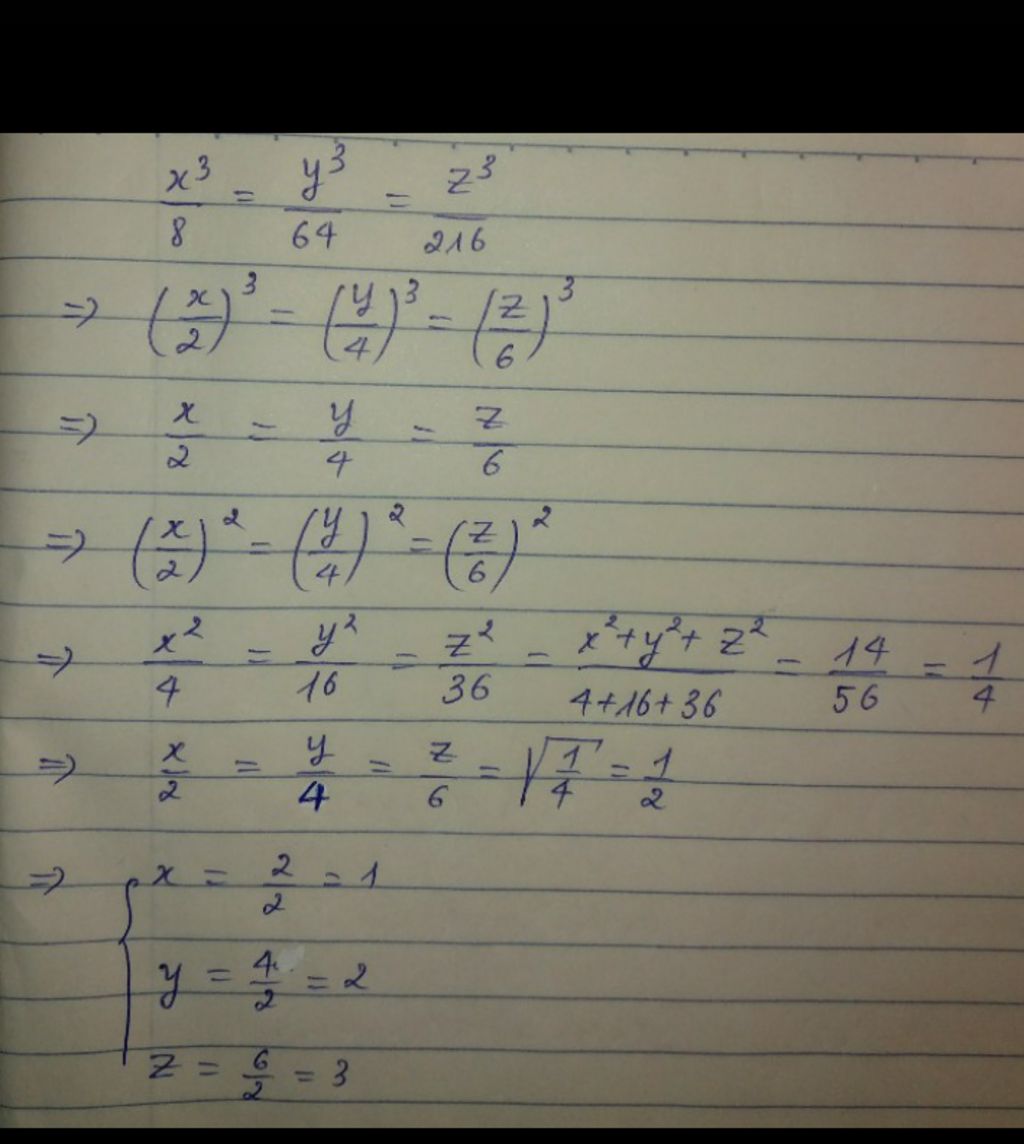 x³/8 = y³/64 = z³/216
=> (x/2)³ = (y/4)³ = (z/6)³
=> x/2 = y/4 = z/6
=> (x/2)² = (y/4)² = (z/6)²
=> x²/4 = y²/16 = z²/36 = x²+y²+z²/4+16+36 = 14/56 = 1/4
=> x/2 = y/4 = z/6 = √1/4 = 1/2
=> { x = 2/2 = 1
y = 4/2 = 2
z = 6/2 = 3